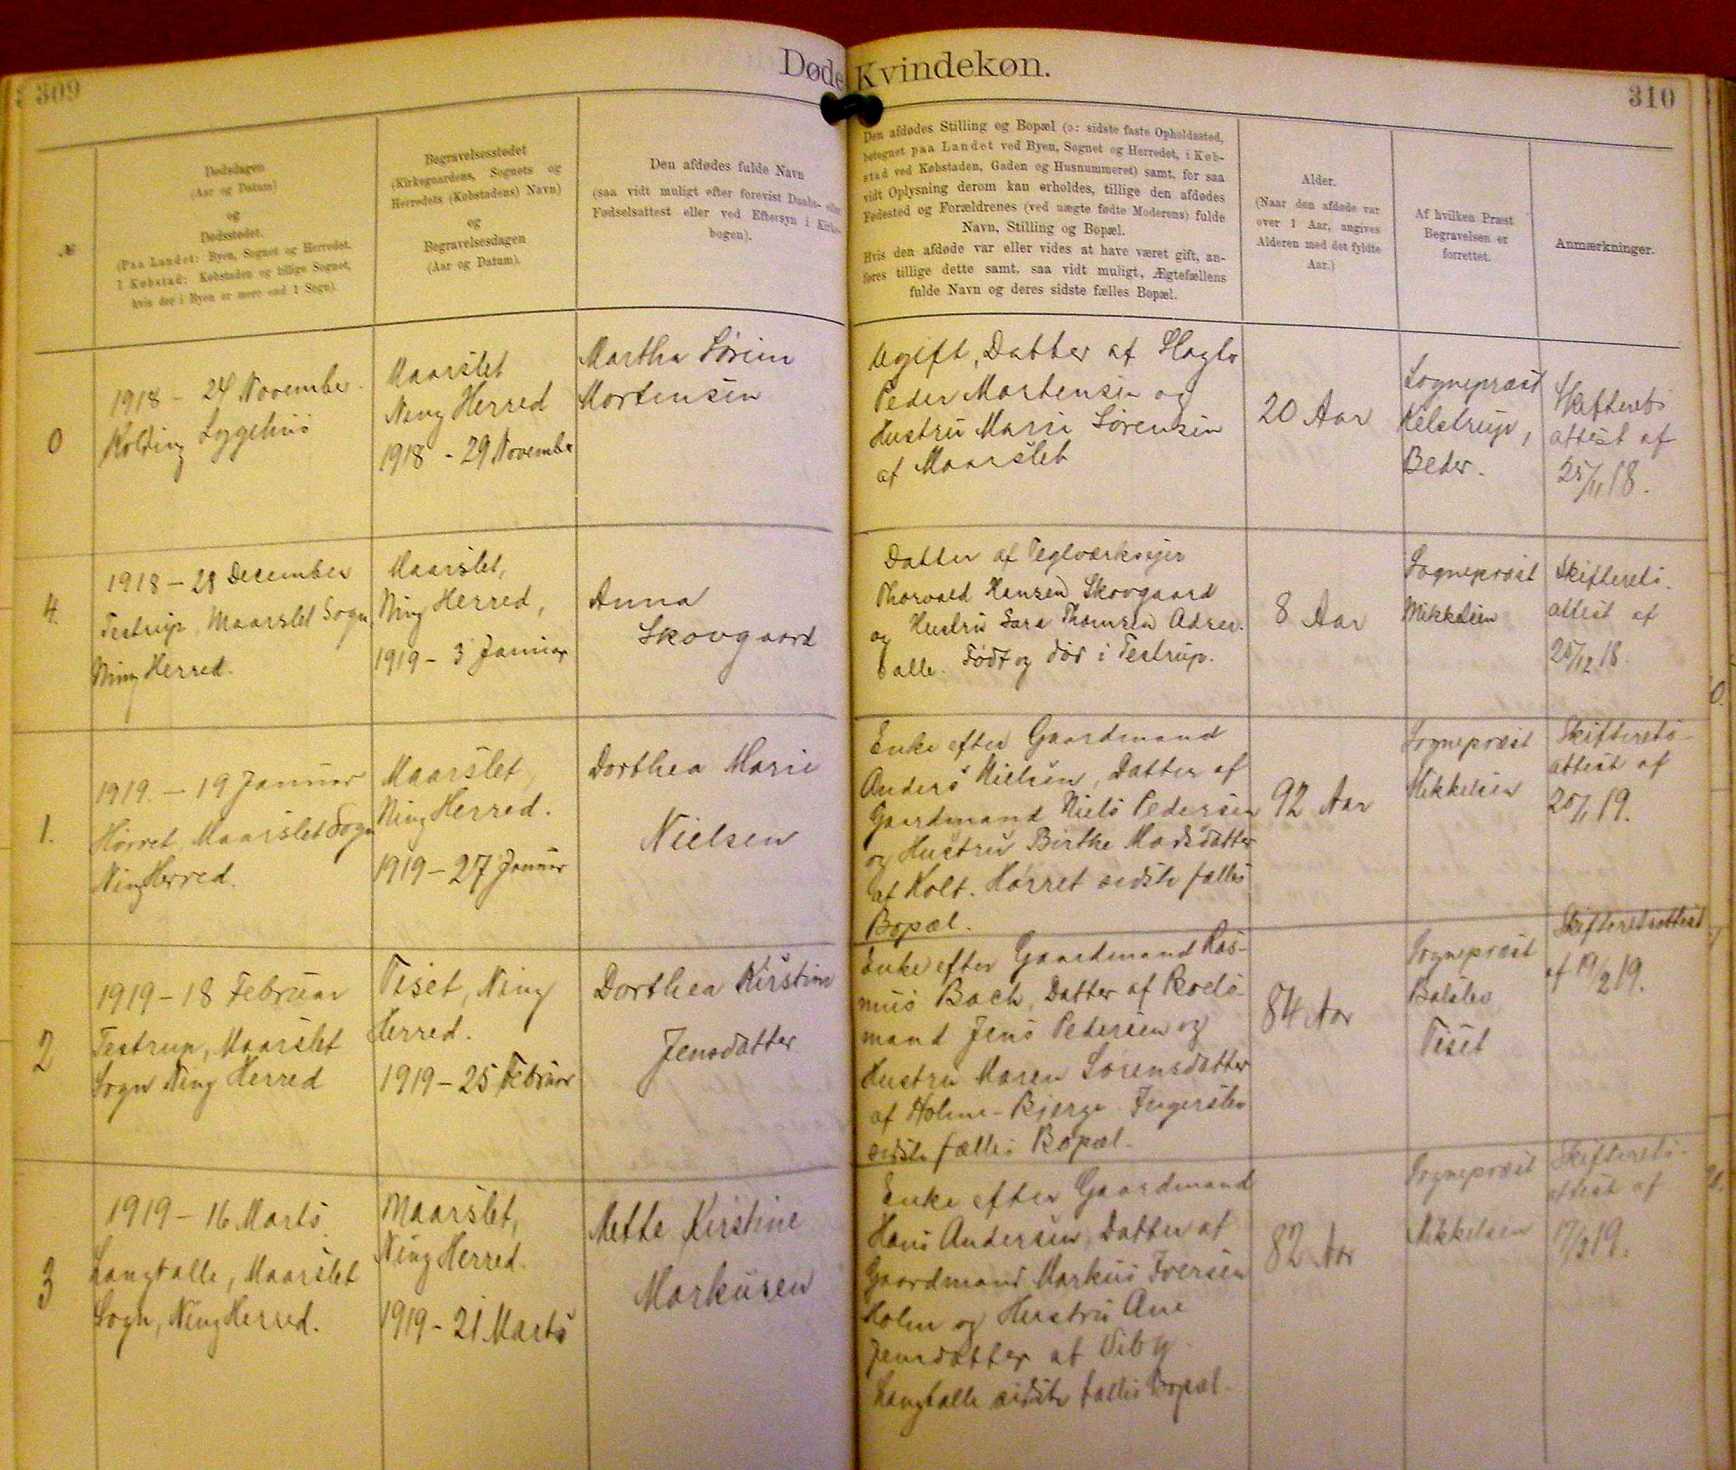 309
Døde Kvindekøn.
310
№
Dødsdagen
(Aar og Datum)
og
Dødsstedet.
(Paa Landet: Byen, Sognet og Herredet.
I Købstad: Købstaden og tillige Sognet,
hvis der i Byen er mere end 1 Sogn).
Begravelsesstedet
(Kirkegaardens, Sognets og
Herredets (Købstadens) Navn)
og
Begravelsesdagen
(Aar og Datum).
Den afdødes fulde Navn
(saa vidt muligt efter forevist Daabs- eller
Fødselsattest eller ved Eftersyn i Kirke-
bogen).
Den afdødes Stilling og Bopæl (ɔ: sidste faste Opholdssted,
betegnet paa Landet ved Byen, Sognet og Herredet, i Køb-
stad ved Købstaden, Gaden og Husnummeret) samt, for saa
vidt Oplysning derom kan erholdes, tillige den afdødes
Fødested og Forældrenes (ved uægte fødte Moderens) fulde
Navn, Stilling og Bopæl.
Hvis den afdøde var eller vides at have været gift, an-
føres tillige dette samt, saa vidt muligt, Ægtefællens
fulde Navn og deres sidste fælles Bopæl.
Alder.
(Naar den afdøde var
over 1 Aar, angives
Alderen med det fyldte
Aar.)
Af hvilken Præst
Begravelsen er
forrettet.
Anmærkninger.
0
1918 - 24 November
Kolding Sygehus
Maarslet
Ning Herred
1918 - 29 November
Martha Sørine
Mortensen
Ugift, Datter af
Peder Mortensen og
Hustru Marie Sørensen
af Maarslet
20 Aar
Sognepræst
Kilstrup,
Beder.
Skifterets
attest af
25/11 18.
4.
1918 - 28 December
Testrup, Maarslet Sogn
Ning Herred.
Maarslet,
Ning Herred,
1919 - 3 Januar
Anna
Skovgaard
Datter af Teglværksejer
Thorvald Hansen Skovgaard
og Hustru Sara Thomsen
Født og død i Testrup.
8 Aar
Sognepræst
Mikkelsen
Skifterets.
attest af
1.
1919. - 19 Januar
Hørret, Maarslet Sogn
Ning Herred.
Maarslet,
Ning Herred.
1919 - 27 Januar
Dorthea Marie
Nielsen
Enke efter Gaardmand
Anders Nielsen, Datter af
Gaardmand Niels Pedersen
og Hustru Birthe Madsdatter
af Kolt. Hørret sidste fælles
Bopæl.
92 Aar
Sognepræst
Mikkelsen
Skifterets-
attest af
20/1 19.
2
1919 - 18 Februar
Testrup, Maarslet
Sogn Ning Herred
Tiset, Ning
Herred.
1919 - 25 Februar
Dorthea Kirstine
Jensdatter
Enke efter Gaardmand Ras-
mus Bach, Datter af
mand Jens Pedersen og
Hustru Maren Sørensdatter
af Holme-Bjerge. Ingerslev
sidste fælles Bopæl.
84 Aar
Sognepræst
Balslev
Tiset
Skifteretsattest
af 19/2 19.
3
1919 - 16 Marts
Langballe, Maarslet
Sogn, Ning Herred.
Maarslet,
Ning Herred.
1919 - 21 Marts
Mette Kirstine
Markusen
Enke efter Gaardmand
Hans Andersen, Datter af
Gaardmand Markus Iversen
Holm og Hustru Ane
Jensdatter af Viby
Langballe sidste fælles Bopæl.
82 Aar
Sognepræst
Mikkelsen
Skifterets-
attest af
17/3 19.